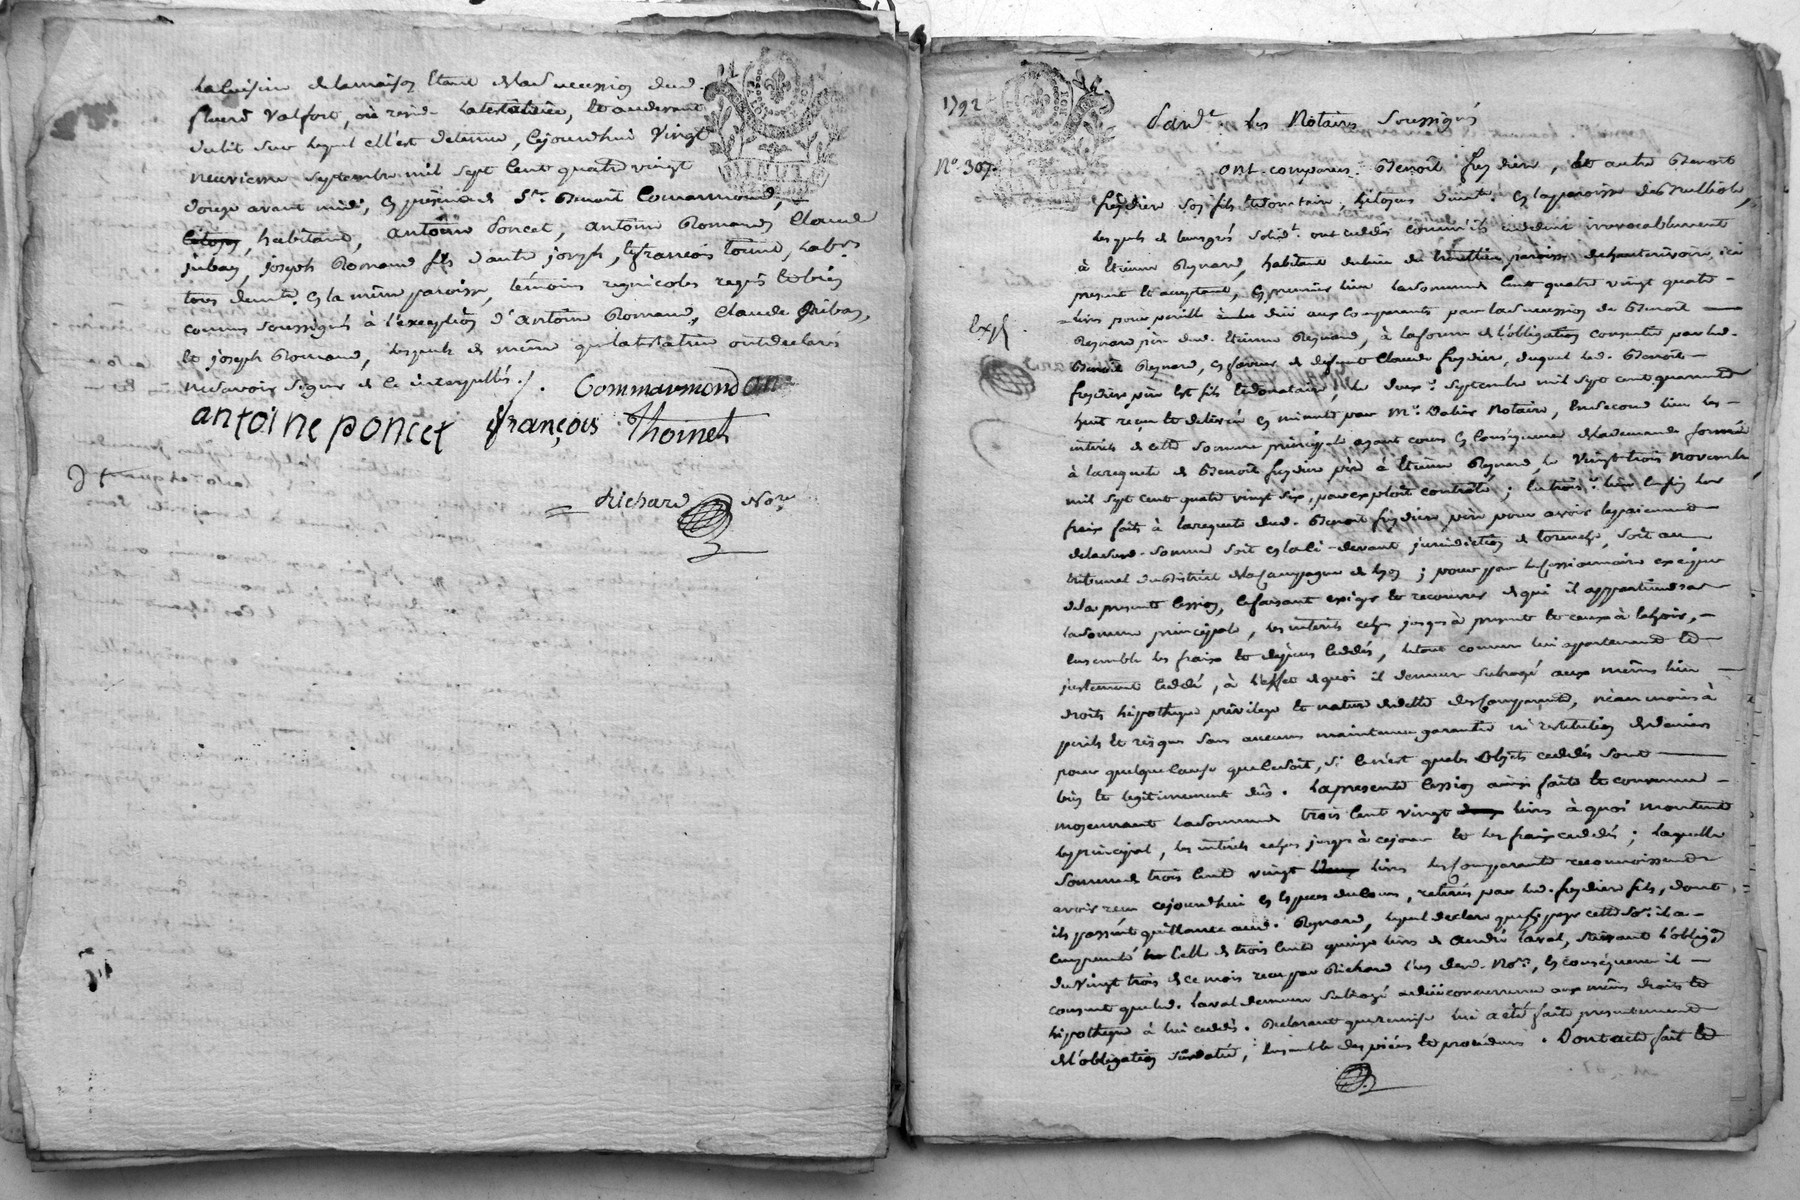 la cuisine de la maison étant de la succession dud.
sieur Valfort, où reside la testatrice, et au devant
du lit sur lequel elle est detenue, cejourdhui vingt
neuvieme septembre mil sept cent quatre vingt
douze avant midi, en présence de Sr. Benoit Comarmond,
citoyen, habitant, antoine Poncet, antoine Romand, Claude
juban, joseph Romand fils d'autre joseph, et françois toinet, habts.
tous de cette même paroisse, témoins regnicoles requis et bien
connus soussignés à l'exception d'antoine Romand, Claude
et joseph Romand, lesquels de même que la testatrice ont declaré
ne savoir signer de ce interpellés ./.
Commarmond
antoine poncet françois Thoinet
Richard Nore
MINUTE
1792
Pardt. les Notaires soussignés
No. 307.
ont comparu Benoit freydier, et autre Benoit
freydier son fils et donataire, citoyens en la paroisse
lesquels de leurs gré solidt. ont cédés comme ils cedent irrevocablement
à Etienne Reynard, habitant du lieu de paroisse de hauterivoire, ici
present et acceptant, en premier lieu la somme de cent quatre vingt quatre
livres pour pareille à eux due aux comparants par la succession de Benoit
Expé.
Reynard père dud. Etienne Reynard, à la forme de l'obligation consentie par led.
Benoit Reynard, en faveur de défunt Claude freydier, duquel led. Benoit
freydier père est fils et donataire, le deux septembre mil sept cent quarante
huit reçu et delivrée en minute par Me. notaire, en second lieu les
intérêts de cette somme principale ayant cours en conséquence de la demande formée
à la requête de Benoit freydier père à Etienne Reynard, le vingt trois novembre
mil sept cent quatre vingt six, par exploit contrôlé; en troise. lieu enfin les
frais faits à la requête dud. Benoit freydier père pour avoir le paiement
de la susd. somme soit en la ci-devant juridiction de soit au
tribunal du district de la Campagne de Lyon; pour par le cessionnaire en vigueur
de la presente cession, se faisant exiger et recouvrer de qui il appartiendra
la somme principale, les intérêts échus jusqu'à present et ceux à échoir,
ensemble les frais et dépens cédés, le tout comme lui appartenant et
justement cédé, à l'effet de quoi il demeure subrogé aux mêmes lieu
droits hipotheque privilege et nature de dette des comparants, néanmoins à
perils et risques sans aucune maintenue garantie ni restitution de deniers
pour quelque cause que ce soit, si ce n'est que les objets cedés sont
bien et legitimement dûs. La presente cession ainsi faite et convenue
moyennant la somme de trois cent vingt livres à quoi montent
le principal, les intérêts échus jusqu'à ce jour et les frais cedés; laquelle
somme de trois cent vingt livres les comparants reconnoissent
avoir reçu cejourdhui en especes de cours, retirés par led. freydier fils, dont
ils passent quittance aud. Reynard, lequel declare que pour payer cette se. il a
emprunté celle de trois cents quinze livres de andré Laval, suivant l'obligon.
du vingt trois de ce mois reçu par Richard l'un desd. nores, en conséquence il
consent que led. Laval demeure subrogé à due concurrence aux mêmes droits et
hipotheque à lui cedés. Declarant que remise lui a été faite presentement
de l'obligation susdatée, ensemble des pièces et procédures. Dont acte fait et